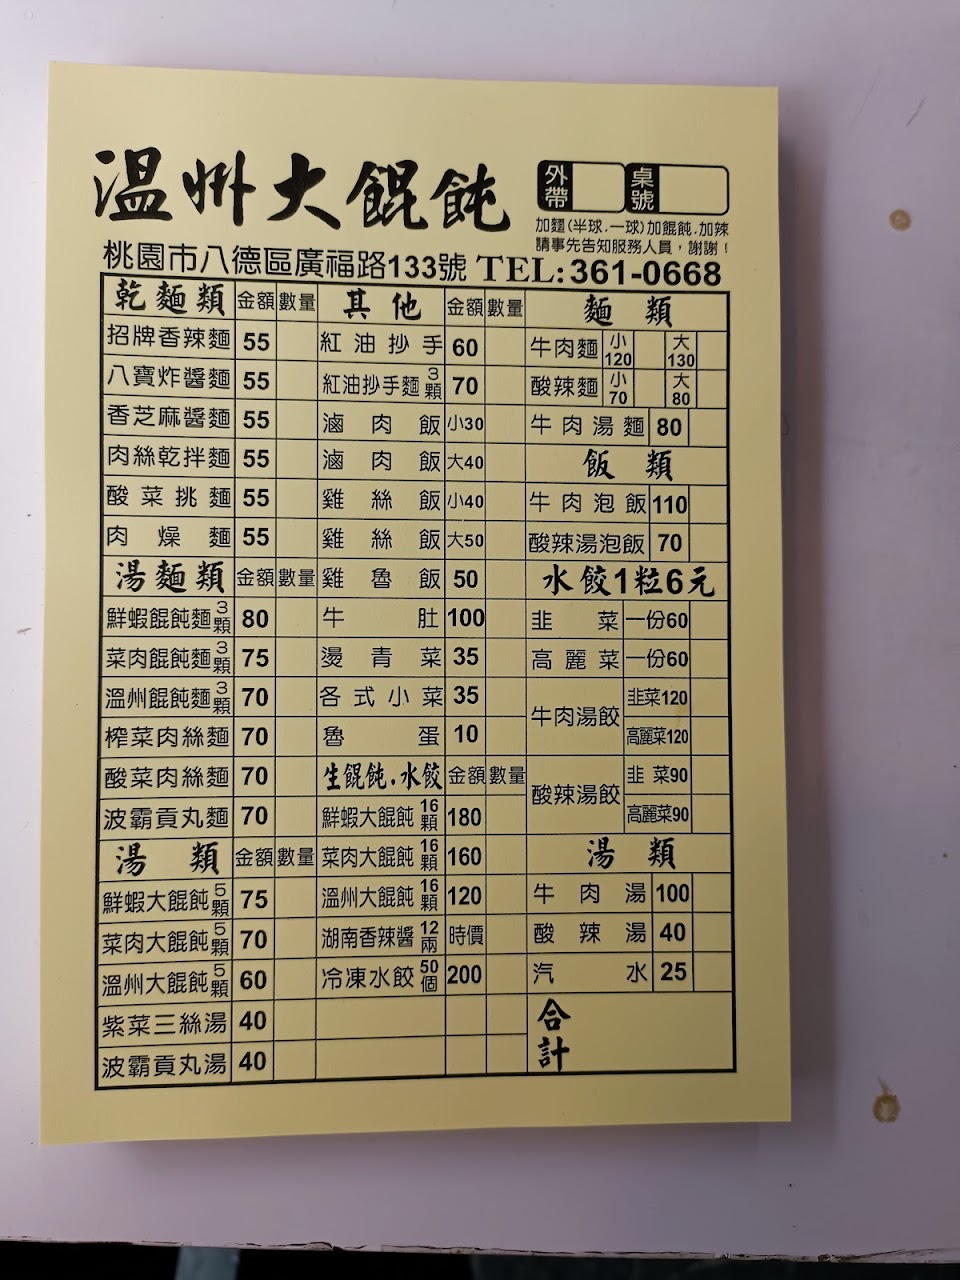 溫州大餛飩
外帶 桌號
加麵(半球.一球)加餛飩.加辣
請事先告知服務人員，謝謝！
桃園市八德區廣福路133號 TEL:361-0668
乾麵類 金額 數量
招牌香辣麵 55
八寶炸醬麵 55
香芝麻醬麵 55
肉絲乾拌麵 55
酸菜挑麵 55
肉燥麵 55
湯麵類 金額 數量
鮮蝦餛飩麵 3顆 80
菜肉餛飩麵 3顆 75
溫州餛飩麵 3顆 70
榨菜肉絲麵 70
酸菜肉絲麵 70
波霸貢丸麵 70
湯類 金額 數量
鮮蝦大餛飩 5顆 75
菜肉大餛飩 5顆 70
溫州大餛飩 5顆 60
紫菜三絲湯 40
波霸貢丸湯 40
其他 金額 數量
紅油抄手 60
紅油抄手麵 3顆 70
滷肉飯 小30
滷肉飯 大40
雞絲飯 小40
雞絲飯 大50
雞魯飯 50
牛肚 100
燙青菜 35
各式小菜 35
魯蛋 10
生餛飩.水餃 金額 數量
鮮蝦大餛飩 16顆 180
菜肉大餛飩 16顆 160
溫州大餛飩 16顆 120
湖南香辣醬 12兩 時價
冷凍水餃 50個 200
麵類
牛肉麵 小120 大130
酸辣麵 小70 大80
牛肉湯麵 80
飯類
牛肉泡飯 110
酸辣湯泡飯 70
水餃1粒6元
韭菜 一份60
高麗菜 一份60
牛肉湯餃 韭菜120
高麗菜120
酸辣湯餃 韭菜90
高麗菜90
湯類
牛肉湯 100
酸辣湯 40
汽水 25
合計